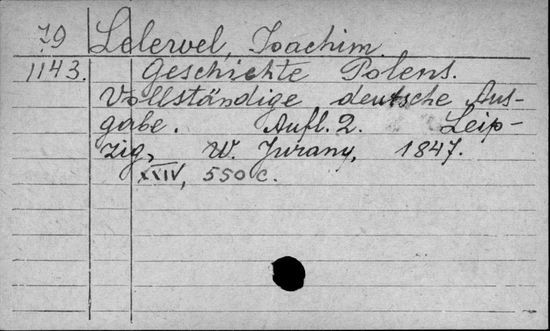 79 Lelewel, Joachim.
1143. Geschichte Polens.
Vollständige deutsche Aus-
gabe. Aufl. 2. Leip-
zig, W. Jurany, 1847.
XXIV, 550 c.